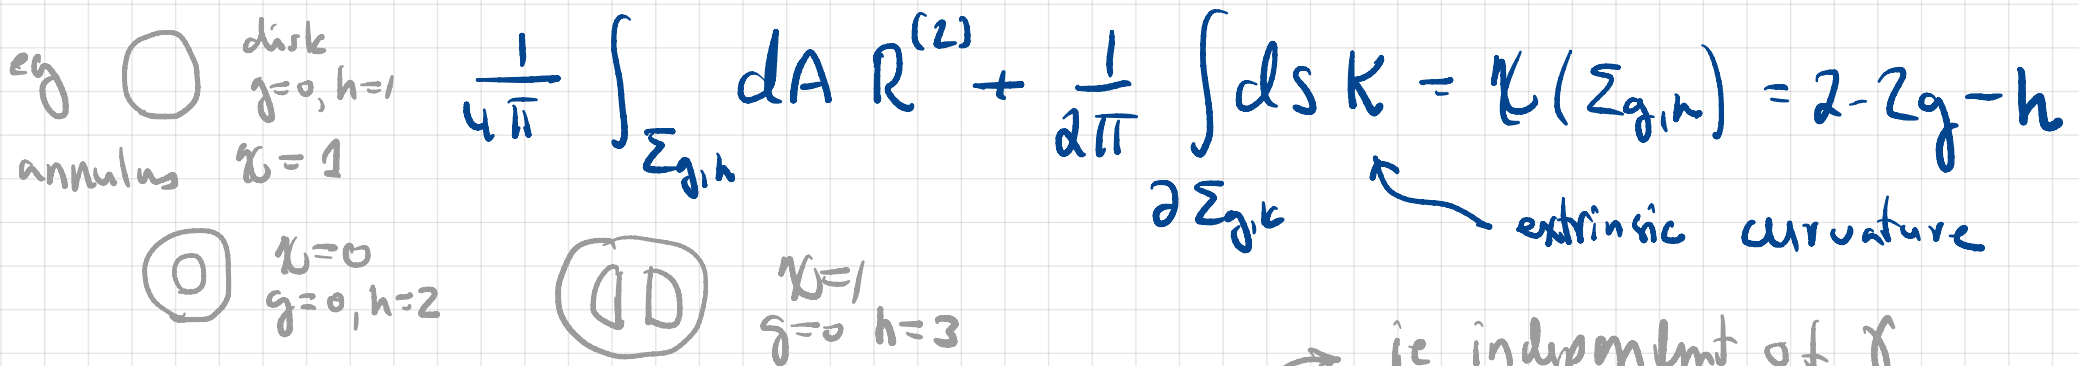 eg disk
g=0, h=1
χ=1
1/4π ∫_{Σ_{g,h}} dA R^{(2)} + 1/2π ∫_{∂Σ_{g,h}} ds K = χ(Σ_{g,h}) = 2-2g-h
extrinsic curvature
annulus
χ=0
g=0, h=2
χ=1
g=0 h=3
→ ie independent of γ